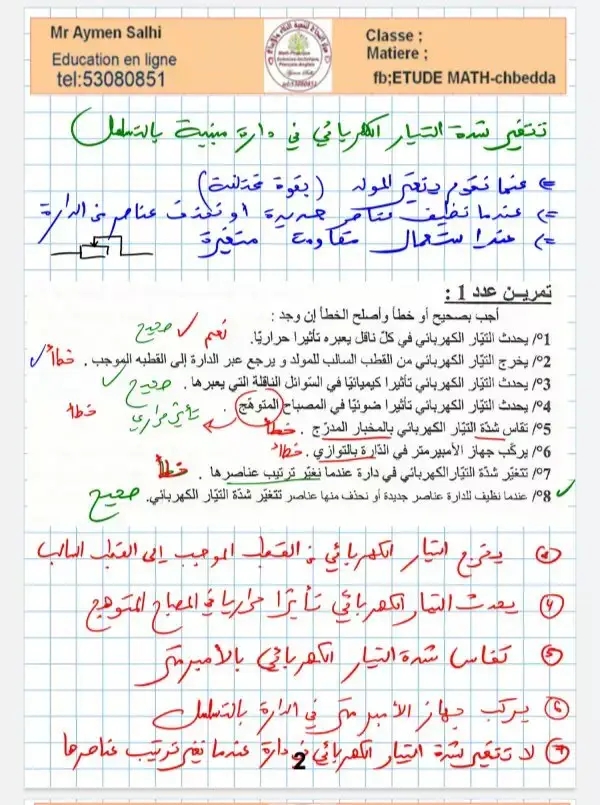 Mr Aymen Salhi
Education en ligne
tel:53080851
Classe ;
Matiere ;
fb;ETUDE MATH-chbedda
تتغير شدة التيار الكهربائي في دارة مبنية بالتسلسل
=> عندما نقوم بتغير المولد (بقوة مختلفة)
=> عندما نظيف عناصر جديدة أو نحذف عناصر من الدارة
=> عند استعمال مقاومة متغيرة
تمريـن عدد 1 :
أجب بصحيح أو خطأ وأصلح الخطأ إن وجد :
1°/ يحدث التيّار الكهربائي في كلّ ناقل يعبره تأثيرا حراريّا. نعم ✓ صحيح
2°/ يخرج التيّار الكهربائي من القطب السالب للمولد و يرجع عبر الدارة إلى القطبه الموجب . خطأ ✓
3°/ يحدث التيّار الكهربائي تأثيرا كيميائيّا في السّوائل النّاقلة التي يعبرها . صحيح ✓
4°/ يحدث التيّار الكهربائي تأثيرا ضوئيّا في المصباح المتوهّج. تأثير حراري خطأ
5°/ تقاس شدّة التيّار الكهربائي بالمخبار المدرّج . خطأ
6°/ يركّب جهاز الأمبيرمتر في الدّارة بالتوازي . خطأ
7°/ تتغيّر شدّة التيّار الكهربائي في دارة عندما نغيّر ترتيب عناصرها . خطأ
8°/ عندما نظيف للدارة عناصر جديدة أو نحذف منها عناصر تتغيّر شدّة التيّار الكهربائي. صحيح ✓
② يخرج التيار الكهربائي من القطب الموجب إلى القطب السالب
④ يحدث التيار الكهربائي تأثيرا حراريا في المصباح المتوهج
⑤ تقاس شدة التيار الكهربائي بالأمبير متر
⑥ يركب جهاز الأمبير متر في الدارة بالتسلسل
⑦ لا تتغير شدة التيار الكهربائي في دارة عندما نغير ترتيب عناصرها
2